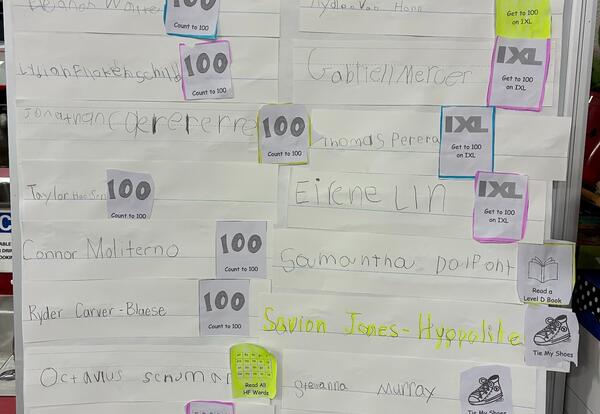 100
Count to 100
100
Count to 100
Jonathan
100
Count to 100
Taylor
100
Count to 100
Connor Moliterno
100
Count to 100
Ryder Carver-Blaese
100
Count to 100
Octavius
Read All
HF Words
Get to 100
on IXL
Gabriell Mercer
IXL
Get to 100
on IXL
Thomas Perera
IXL
Get to 100
on IXL
Eirene Lin
IXL
Get to 100
on IXL
Samantha DalPont
Read a
Level D Book
Savion Jones-Hyppolite
Tie My Shoes
Murray
Tie My Shoes